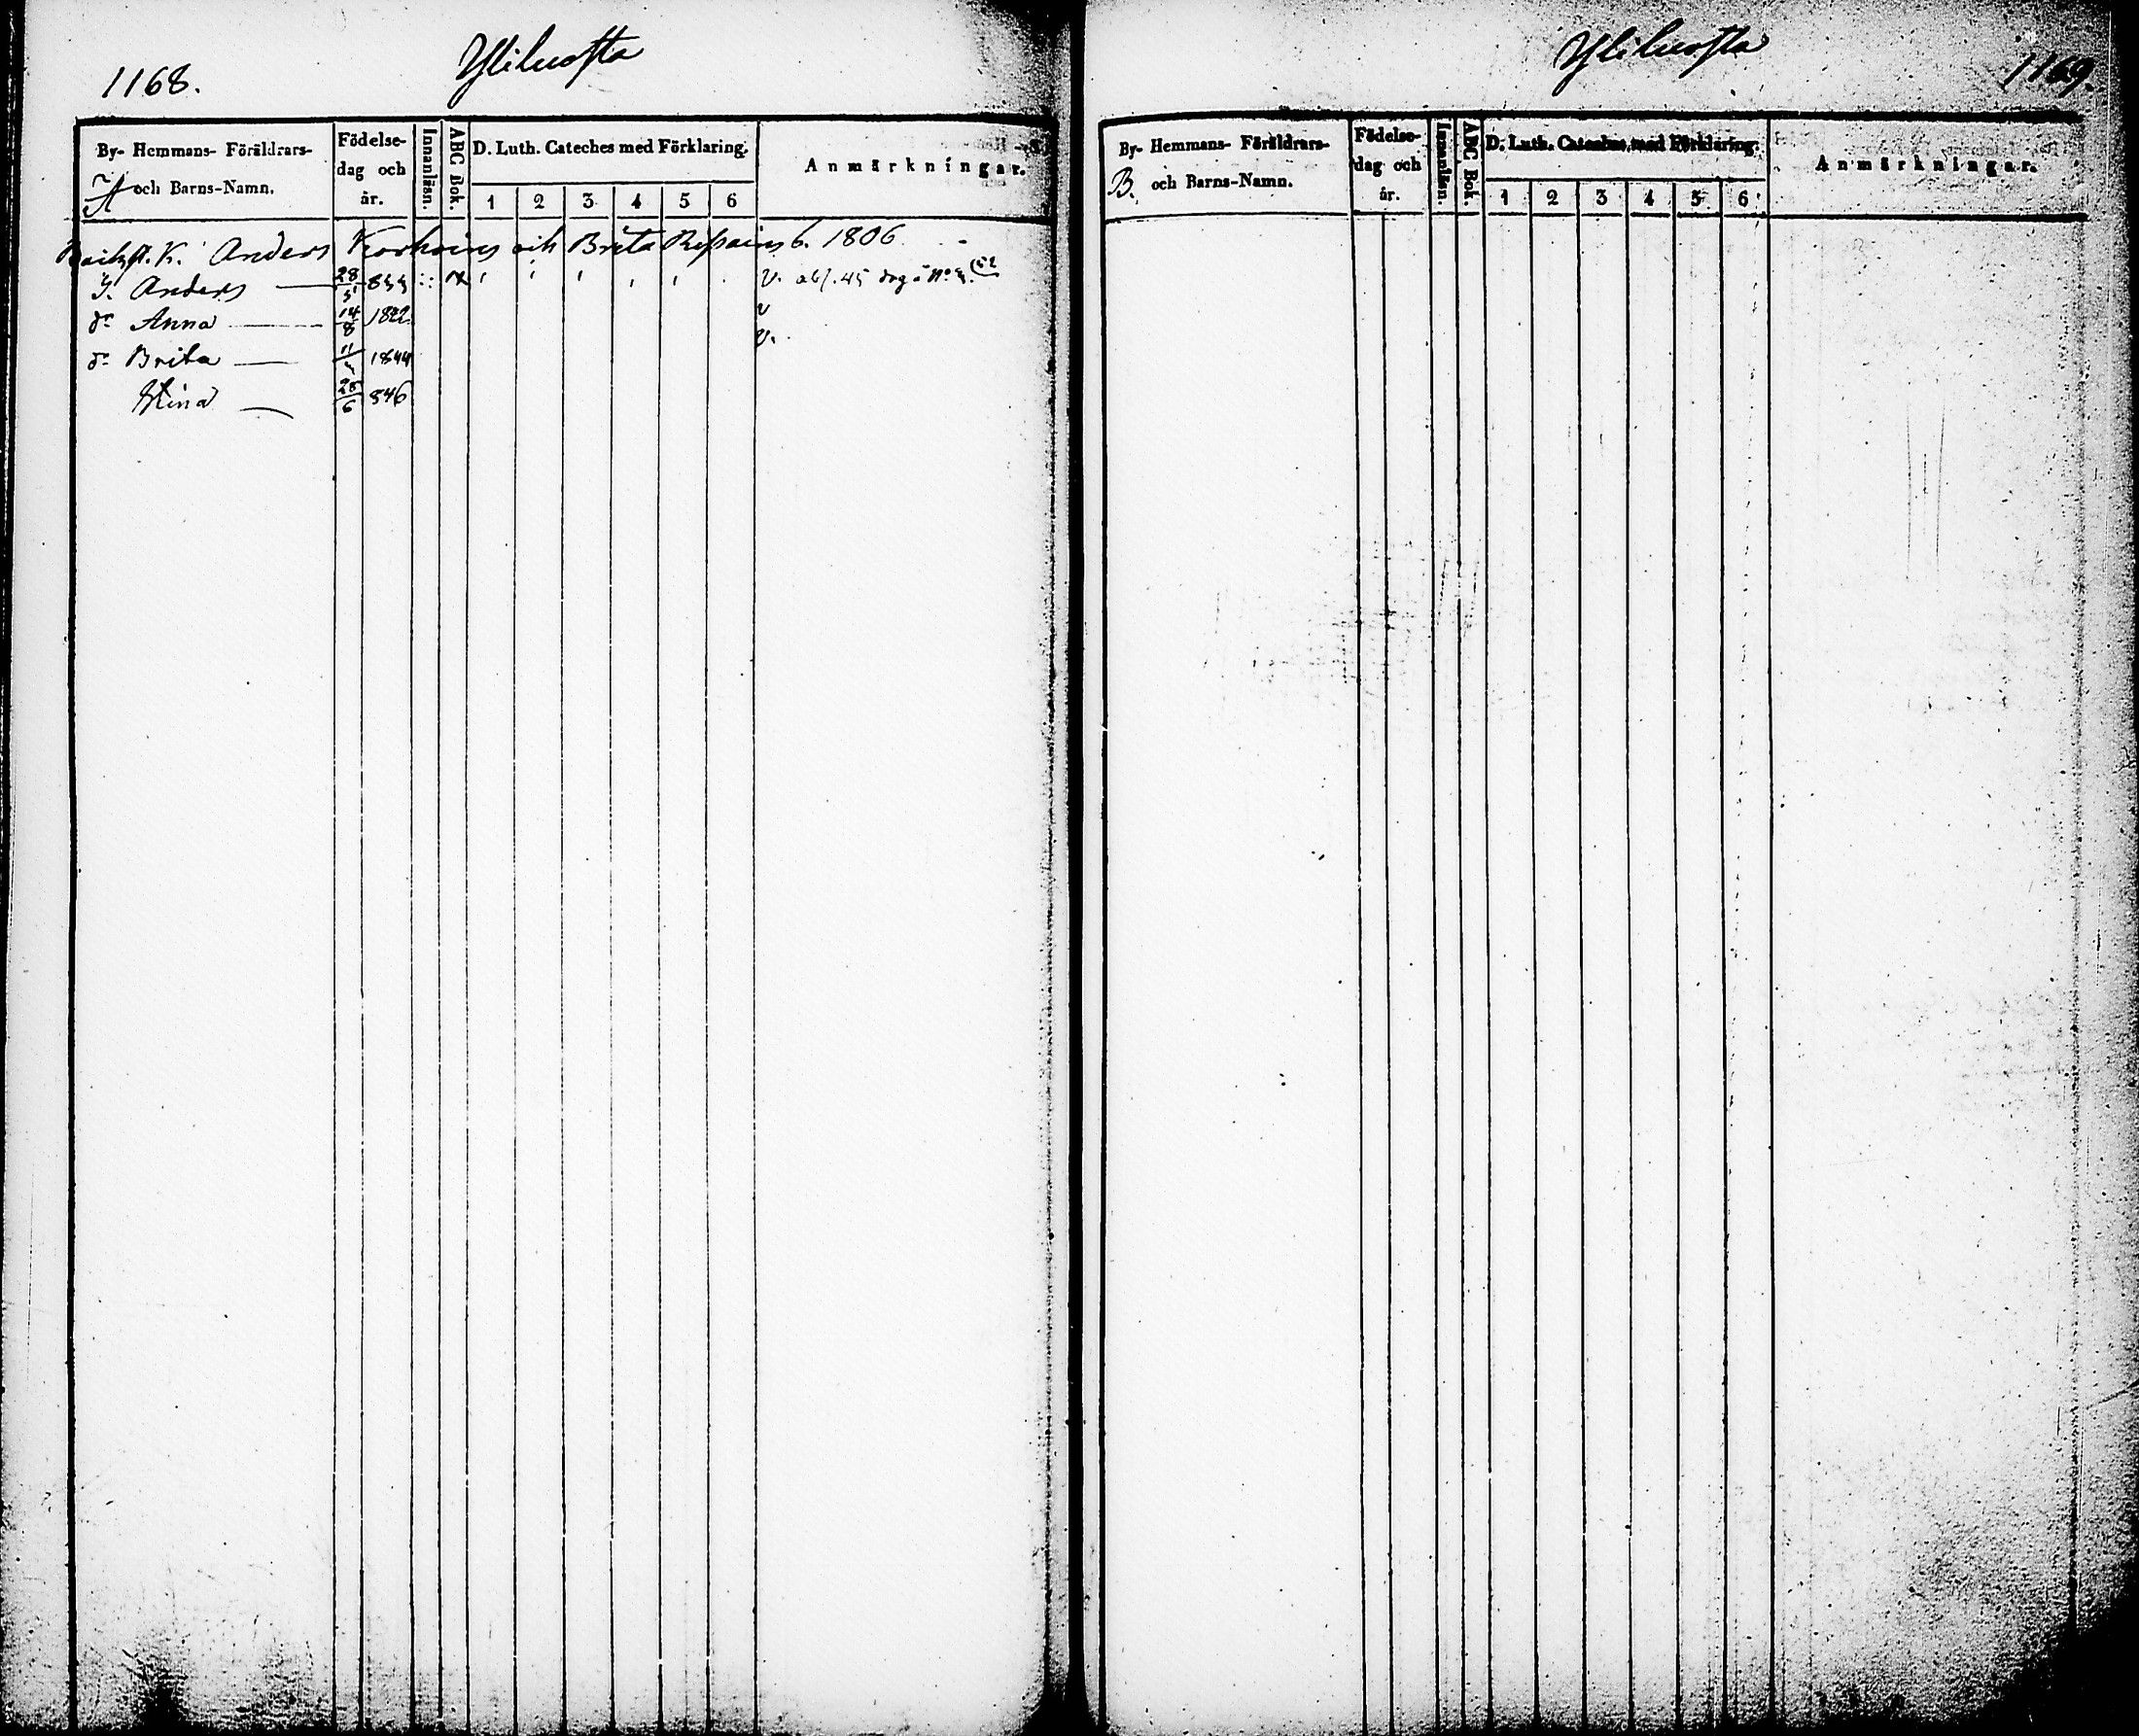 1168.
Yliluosta
By- Hemmans- Föräldrars-
och Barns-Namn.
A
Födelse-
dag och
år.
Innanläsn.
ABC Bok.
D. Luth. Cateches med Förklaring.
1 2 3 4 5 6
Anmärkningar.
K. Anders Korhoins och Brita b. 1806
Anders 28/5 833 v.
dr Anna 14/8 1822 v
dr Brita 11 1844 v.
Stina 6 846
Yliluosta
1169.
By- Hemmans- Föräldrars-
och Barns-Namn.
B.
Födelse-
dag och
år.
Innanläsn.
ABC Bok.
D. Luth. Cateches med Förklaring.
1 2 3 4 5 6
Anmärkningar.